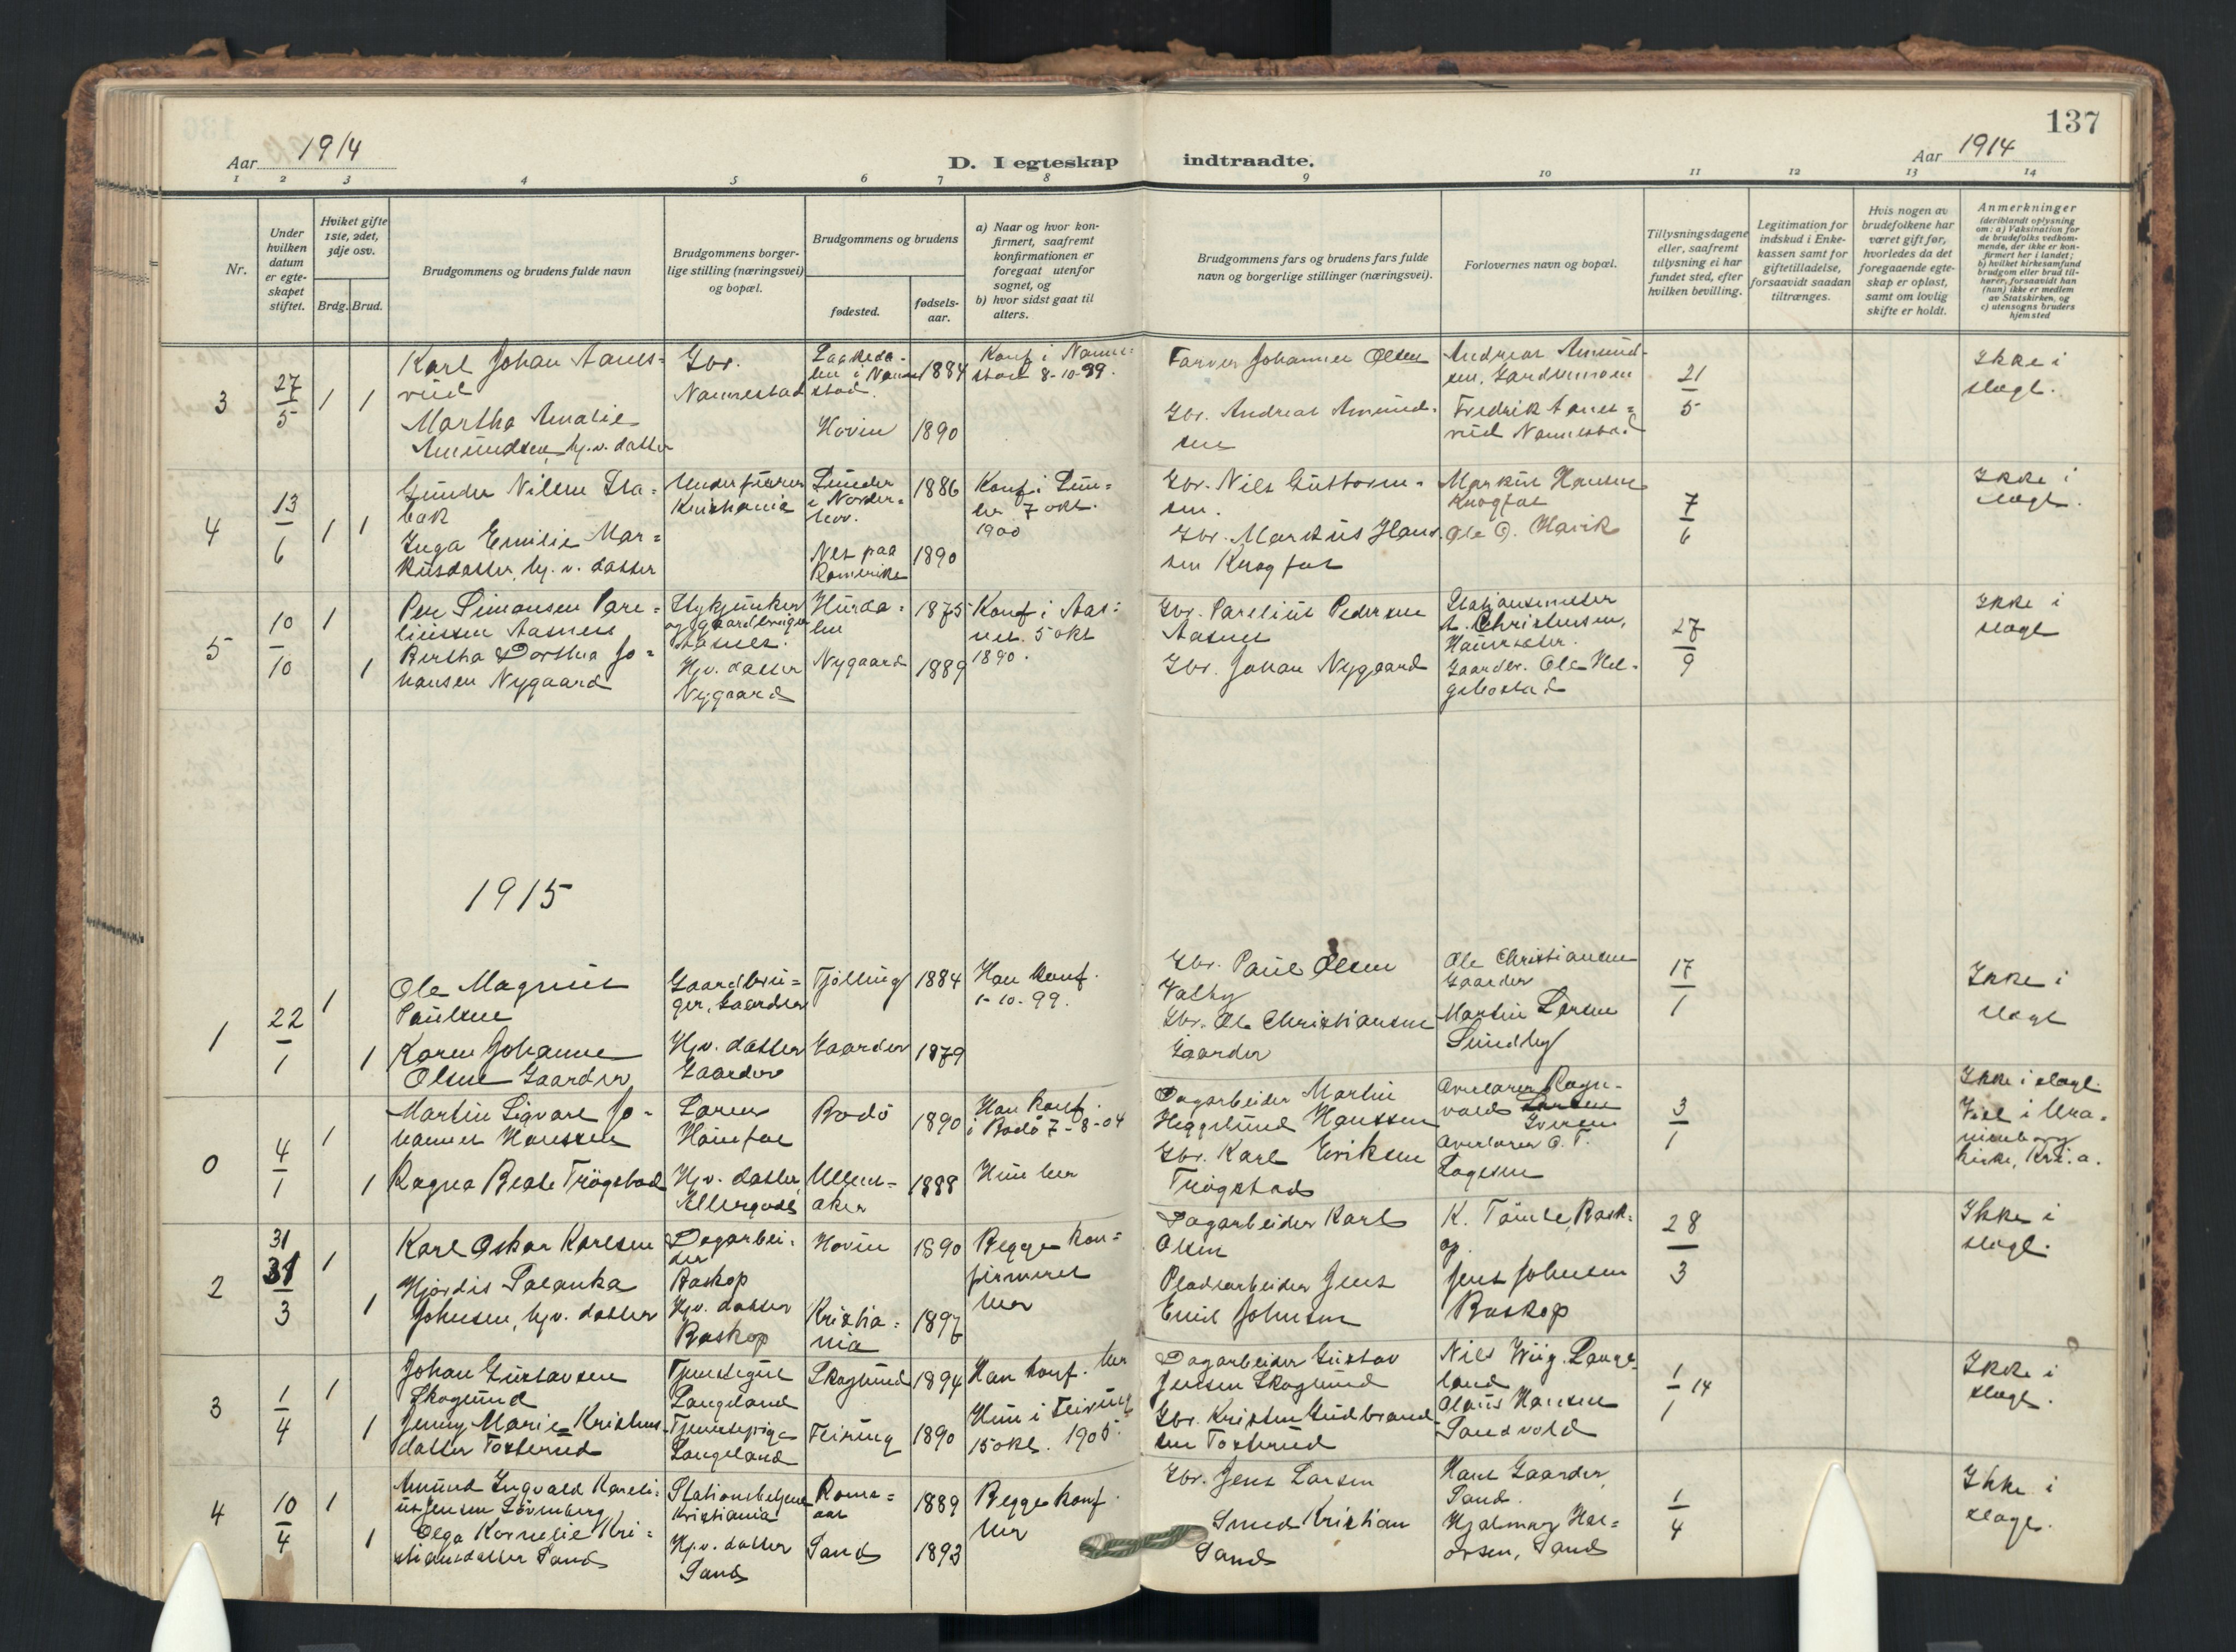 137
Aar 1914
D. I egteskap indtraadte.
Aar 1914
1 2 3 4 5 6 7 8 9 10 11 12 13 14
Nr.
Under hvilken datum er egteskapet stiftet.
Hvilket gifte 1ste, 2det, 3dje osv.
Brdg. Brud.
Brudgommens og brudens fulde navn
Brudgommens borgerlige stilling (næringsvei) og bopæl.
Brudgommens og brudens
fødested.
fødselsaar.
a) Naar og hvor konfirmert, saafremt konfirmationen er foregaat utenfor sognet, og
b) hvor sidst gaat til alters.
Brudgommens fars og brudens fars fulde navn og borgerlige stillinger (næringsvei).
Forlovernes navn og bopæl.
Tillysningsdagene eller, saafremt tillysning ei har fundet sted, efter hvilken bevilling.
Legitimation for indskud i Enkekassen samt for giftetilladelse, forsaavidt saadan tiltrænges.
Hvis nogen av brudefolkene har været gift før, hvorledes da det foregaaende egteskap er opløst, samt om lovlig skifte er holdt.
Anmerkninger
(deriblandt oplysning om: a) Vaksination for de brudefolks vedkommende, der ikke er konfirmert her i landet;
b) hvilket kirkesamfund brudgom eller brud tilhører, forsaavidt han (hun) ikke er medlem av Statskirken, og
c) utensogns bruders hjemsted
3
27/5
1 1
Karl Johan Aanes=
rud
Martha Amalie
Amundsen, hj.v. datter
Gbr.
Nannestad
i Nanne
stad.
1884
Hovin
1890
Konf i Nanne=
stad 8-10-99.
Farver Johannes Olsen
Gbr. Andreas Amund=
sen
Andreas Amund=
sen, Gardermoen
Fredrik Aanes=
rud Nannestad
21/5
Ikke i
slegt.
4
13/6
1 1
Gunder Nilsen Sta=
bak
Inga Emilie Mar=
kusdatter, hj. v. datter
Kristiania
Lunder
i Norder=
hov.
1886
Nes paa
Romerike
1890
Konf i Lun=
der 7 okt.
1900
Gbr. Niels Guttorm=
sen.
Gbr. Markus Han=
sen Knogfos
Markus Hansen
Knogfos
Ole O. Havik
7/6
Ikke i
slegt.
5
10/10
1
1
Per Simonsen Pare=
liussen Aasnes
Bertha Dorthea Jo=
hansen Nygaard
og gaardbruger
Aasnes.
Hj.v. datter
Nygaard
Hurda=
len
1875
Nygaard
1889
Konf i Aas=
nes. 5 okt
1890.
Gbr. Parelius Pedersen
Aasnes
Gbr. Johan Nygaard
Stationsmester
A. Christensen,
Gaardbr. Ole Hel=
gebostad
27/9
Ikke i
slegt
1915
1
22/1
1
1
Ole Magnus
Paulsen
Karen Johanne
Olsen Gaarder
Gaardbru=
ger, Gaarder
Hj.v. datter
Gaarder
Tjølling
1884
Gaarder
1879
Han konf.
1-10-99.
Gbr. Paul Olsen
Valby
Gbr. Ole Christiansen
Gaarder
Ole Christiansen
Gaarder
Martin Larsen
Sundby
17/1
Ikke i
slegt
0
4/1
1
1
Martin Sigvart Jo=
hannes Hanssen
Ragna Beate Trøgstad
Hj.v. datter
Bodø
1890
Ullens=
aker
1888
Han konf.
i Bodø 7-8-04
Hun her
Dagarbeider Martin
Heggelund Hanssen
Gbr. Karl Eriksen
Trøgstad
Ragn=
vald Larsen
Iversen
O. T.
Lagesen
3/1
Ikke i slegt.
Viet i Ura=
nienborg
kirke, Kr.a.
2
31
31/3
1
1
Karl Oskar Karlsen
Hjørdis Palanka
Johnsen, hj.v. datter
Dagarbei=
der
Baskop
Hj.v. datter
Baskop
Hovin
1890
Kristia=
nia
1896
Begge kon=
firmeret
her
Dagarbeider Karl
Olsen
Pladsarbeider Jens
Emil Johnsen
K. Tømte Bask=
op.
Jens Johnsen
Baskop
28/3
Ikke i
slegt.
3
1/4
1
1
Johan Gustavsen
Skoglund
Jenny Marie Kristens=
datter Tosterud
Tjenestegut
Langeland
Tjenestepige
Langeland
Skoglund
1894
Feiring
1890
Han konf. her
Hun i Feiring
15 okt. 1905.
Dagarbeider Gustav
Jensen Skoglund
Gbr. Kristen Gudbrand=
sen Tosterud
Nils Wiig. Lange=
land
Olaus Hansen
Sandvold
1/1 14
Ikke i
slegt.
4
10/4
1
1
Amund Ingvald Kareli=
us Jensen Løvenberg
Olga Kornelie Kri=
stiansdatter Sand
Stationsbetjent
Kristiania
Hj.v. datter
Sand
Rome=
aas
1889
Sand
1893
Begge konf.
her
Gbr. Jens Larsen
Smed Kristian
Sand
Hans Gaarder,
Sand.
Hjalmar Hal=
orsen, Sand
1/4
Ikke i
slegt.